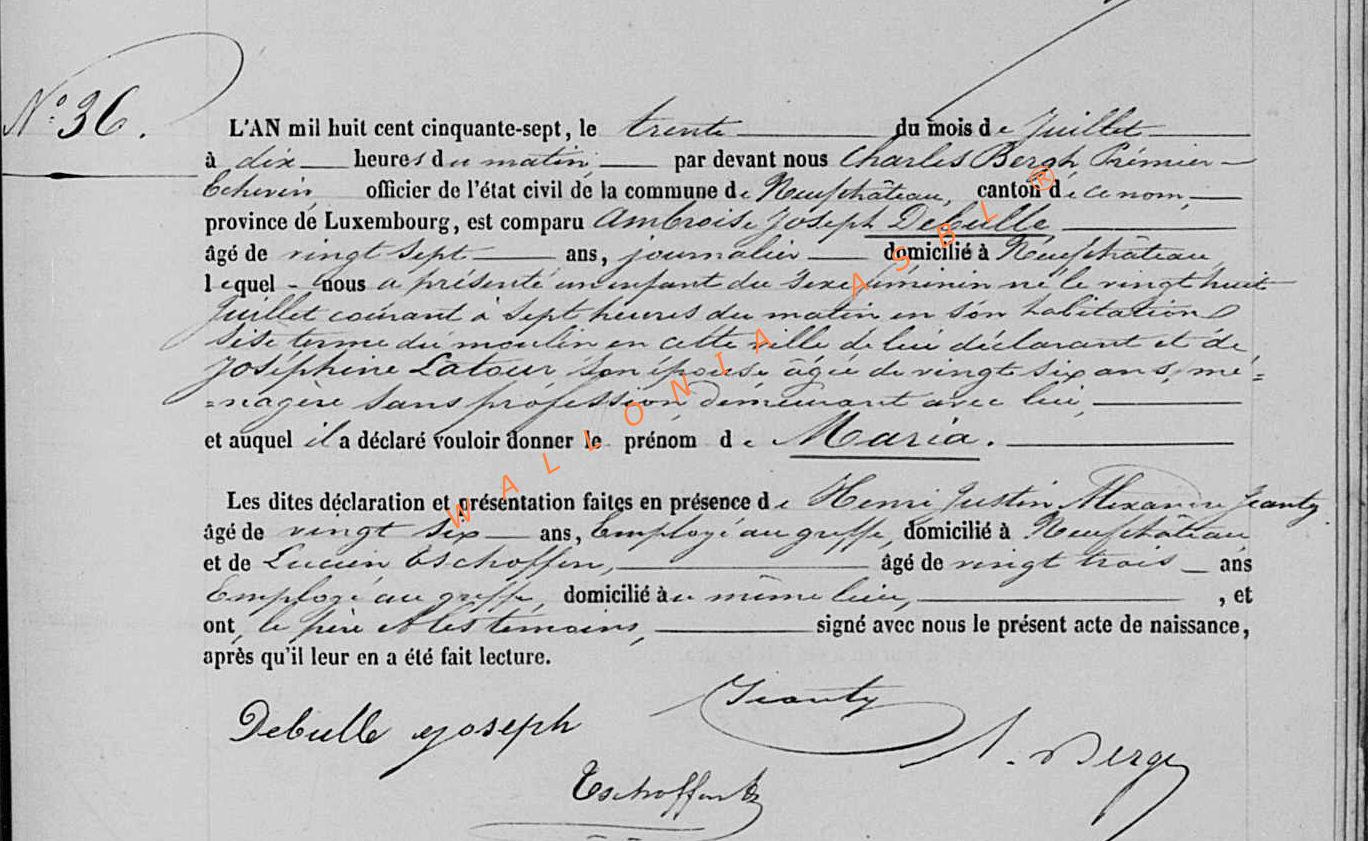 N° 36.
L'AN mil huit cent cinquante-sept, le trente du mois de Juillet
à dix heures du matin, par devant nous Charles Bergh Prémier
Echevin, officier de l'état civil de la commune de Neufchâteau, canton de ce nom,
province de Luxembourg, est comparu Ambroise Joseph Debulle
âgé de vingt sept ans, journalier domicilié à Neufchâteau
lequel nous a présenté un enfant du sexe féminin né le vingt huit
Juillet courant à sept heures du matin en son habitation
sise terme du moulin en cette ville de lui déclarant et de
Joséphine Latour son épouse âgée de vingt six ans, mé=
=nagère sans profession, demeurant avec lui,
et auquel il a déclaré vouloir donner le prénom de Maria.
Les dites déclaration et présentation faites en présence de Henri Justin Alexandre Jeanty
âgé de vingt six ans, Employé au greffe, domicilié à Neufchâteau
et de Lucien Eschoffen, âgé de vingt trois ans
Employé au greffe, domicilié au même lieu, , et
ont, le père & les témoins, signé avec nous le présent acte de naissance,
après qu'il leur en a été fait lecture.
Debulle Joseph
Jeanty
Bergh
Tschoffen
WALLONIA ASBL ®